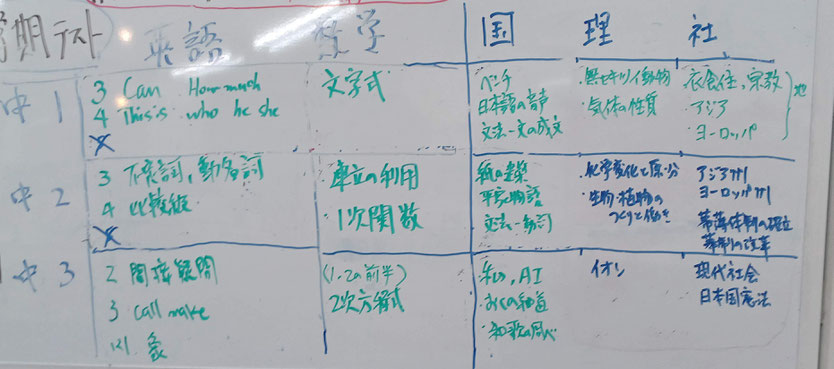 期テスト 英語 数学 国 理 社
中1
3 Can How much
4 This is who he she
文字式
ベンチ
日本語の音声
文法一文の成文
・無セキツイ動物
・気体の性質
衣食住,宗教
・アジア
・ヨーロッパ
地
中2
3 不定詞,動名詞
4 比較級
連立の利用
・1次関数
紙の建築
平家物語
文法一動詞
化学変化と原・分
・生物・植物の
つくりと働き
アジア州
ヨーロッパ州
幕藩体制の確立
幕制の改革
中3
2 間接疑問
3 call make
(1・2の前半)
2次方程式
私,AI
おくの細道
・和歌の調べ
イオン
現代社会
日本国憲法